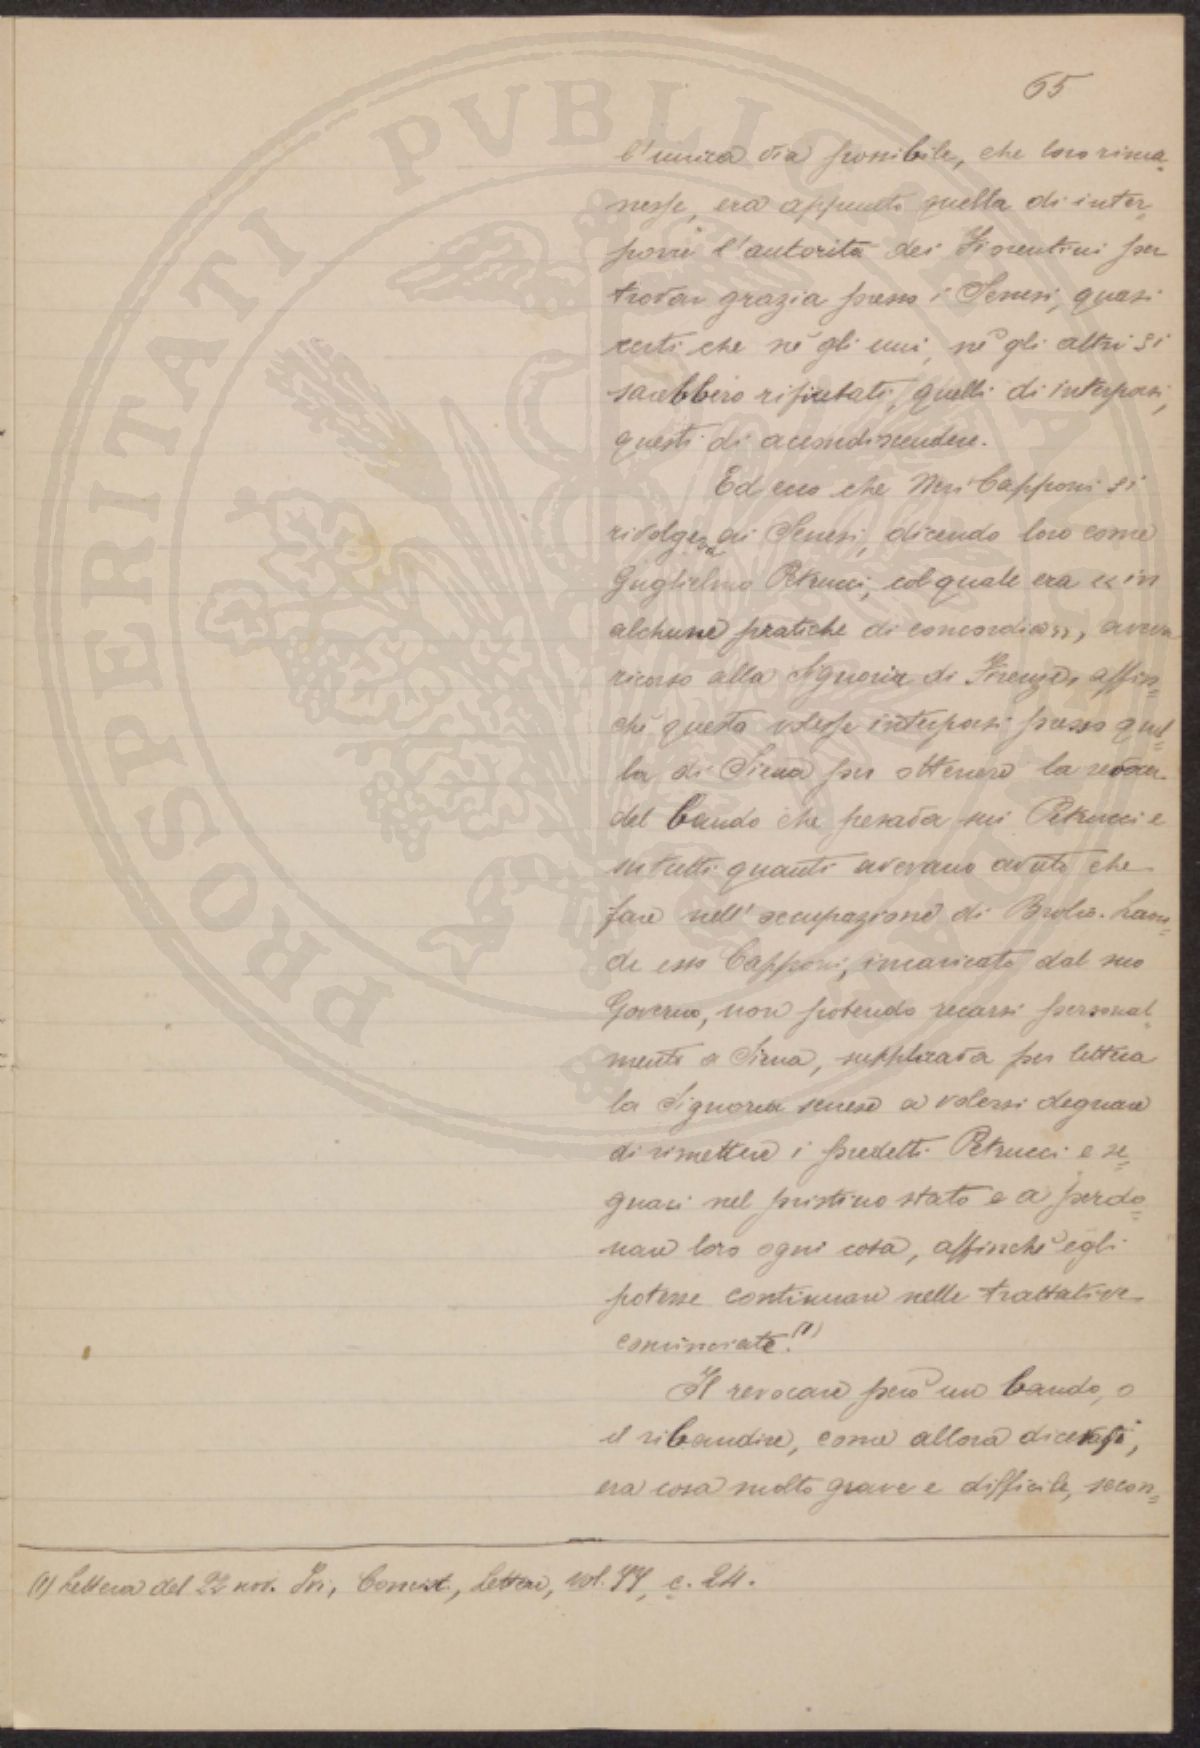 65
l'unica via possibile, che loro rima-
nesse, era appunto quella di inter-
porre l'autorità dei Fiorentini per
trovar grazia presso i Senesi, quasi
certi che nè gli uni, nè gli altri si
sarebbero rifiutati, quelli di interporsi,
questi di accondiscendere.
Ed ecco che Neri Capponi si
rivolgeva ai Senesi, dicendo loro come
Guglielmo Petrucci, col quale era « in
alchune pratiche di concordia », aveva
ricorso alla Signoria di Firenze, affin=
chè questa volesse interporsi presso quel=
la di Siena per ottenere la revoca
del bando che pesava sui Petrucci e
su tutti quanti avevano avuto che
fare nell'occupazione di Brolio. Laon=
de esso Capponi, incaricato dal suo
Governo, non potendo recarsi personal=
mente a Siena, supplicava per lettera
la Signoria senese a volersi degnare
di rimettere i predetti Petrucci e se=
guaci nel pristino stato e a perdo=
nare loro ogni cosa, affinchè egli
potesse continuare nelle trattative
cominciate. (1)
Il revocare però un bando, o
il ribandire, come allora dicevasi,
era cosa molto grave e difficile, secon=
(1) Lettera del 22 nov. Ivi, Concist., Lettere, vol. 44, c. 24.
PROSPERITATI PVBLICAE